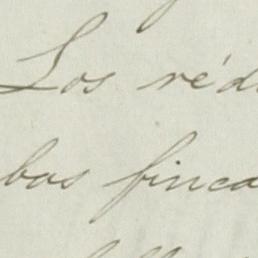 Los réd
bas finca